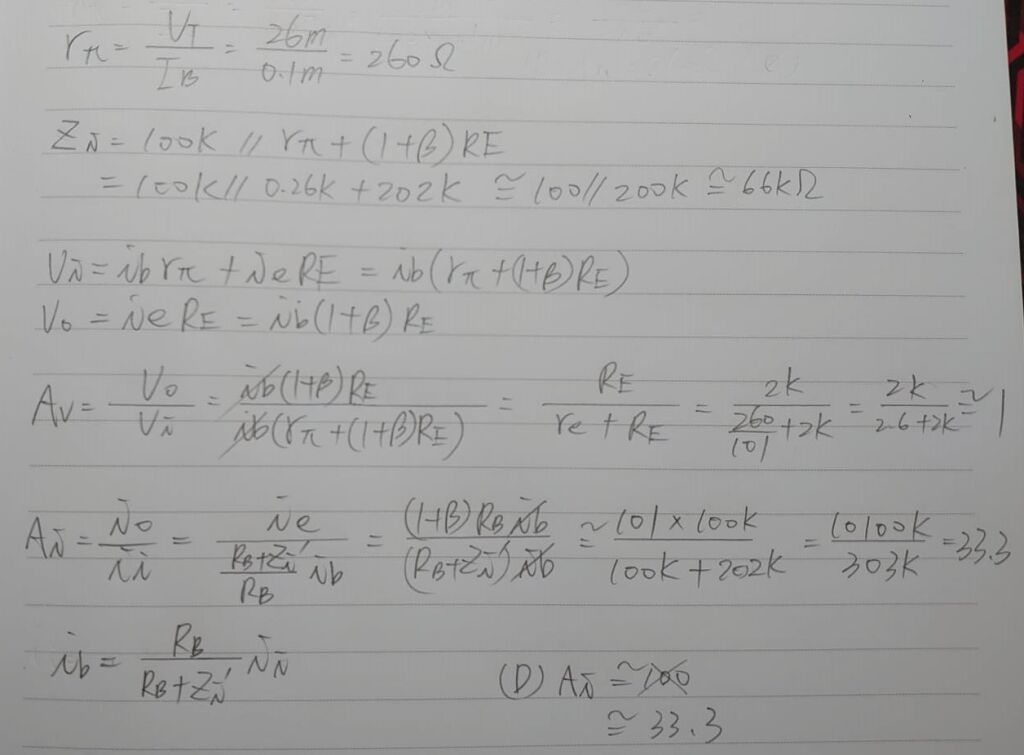 rπ = VT/IB = 26m/0.1m = 260Ω
Zi = 100K // rπ + (1+β)RE
= 100K // 0.26K + 202K ≅ 100 // 200K ≅ 66KΩ
Vi = ib rπ + ie RE = ib(rπ + (1+β)RE)
Vo = ie RE = ib(1+β)RE
Av = Vo/Vi = ib(1+β)RE / ib(rπ + (1+β)RE) = RE / (re + RE) = 2K / (260/101 + 2K) = 2K / (2.6 + 2K) ≅ 1
Ai = io/ii = ie / ((RB+Zi')/RB ib) = (1+β)RB ib / (RB+Zi') ib ≅ 101 × 100K / (100K + 202K) = 10100K / 303K = 33.3
ib = RB / (RB+Zi') ii
(D) Ai ≅ 100
≅ 33.3